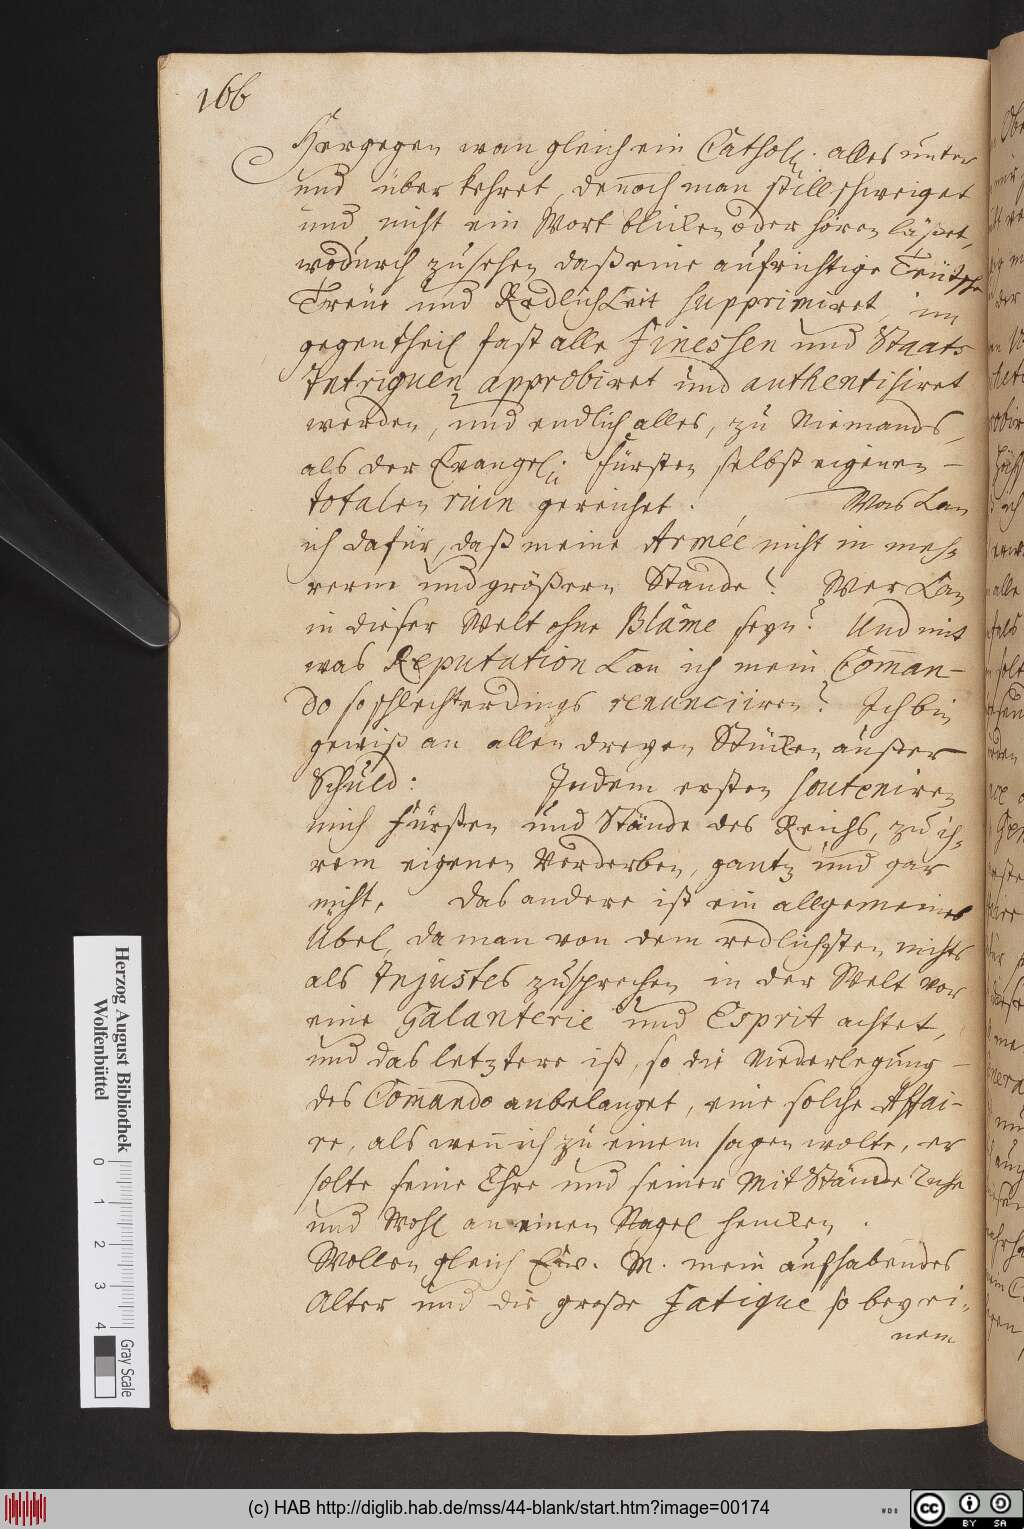 166
Hergegen wan gleich ein Cathol. alles unter
und über kehret, den̄och man still schweiget
und nicht ein Wort blicken oder hören läßet,
wodurch zusehen, daß eine aufrichtige Teütsche
Treüe und Redlichkeit supprimiret, im
gegentheil fast alle Finessen und Staats
Intriguen approbiret und authentisiret
werden, und endlich alles, zu Niemands,
als der Evangel: Fürsten selbst eigenen
totalen ruin gereichet. Was kan
ich dafür, daß meine Armée nicht in meh-
rerm und größern Stande? Wer kan
in dieser Welt ohne Blâme seyn? Und mit
was Reputation kan ich mein Com̄an-
do so schlechterdings renunciiren? Ich bin
gewiß an allen dreyen Stücken außer
Schuld: In dem ersten souteniren
mich Fürsten und Stände des Reichs, zu ih-
rem eigenen Verderben, gantz und gar
nicht. Das andere ist ein allgemeines
Übel, da man von dem redlichsten nichts
als Injustes zusprechen in der Welt vor
eine Galanterie und Esprit achtet,
und das letztere ist, so die Niederlegung
des Com̄ando anbelanget, eine solche Affai-
re, als wen̄ ich zu einem sagen wolte, er
solte seine Ehre und seiner Mit Stände Ruhe
und Wohl an einen Nagel hencken.
Wollen gleich Ew. M. mein aufhabendes
Alter und die große Fatigue so bey ei-
nem
Herzog August Bibliothek
Wolfenbüttel
0 1 2 3 4
Gray Scale
(c) HAB http://diglib.hab.de/mss/44-blank/start.htm?image=00174
WDB
cc BY SA